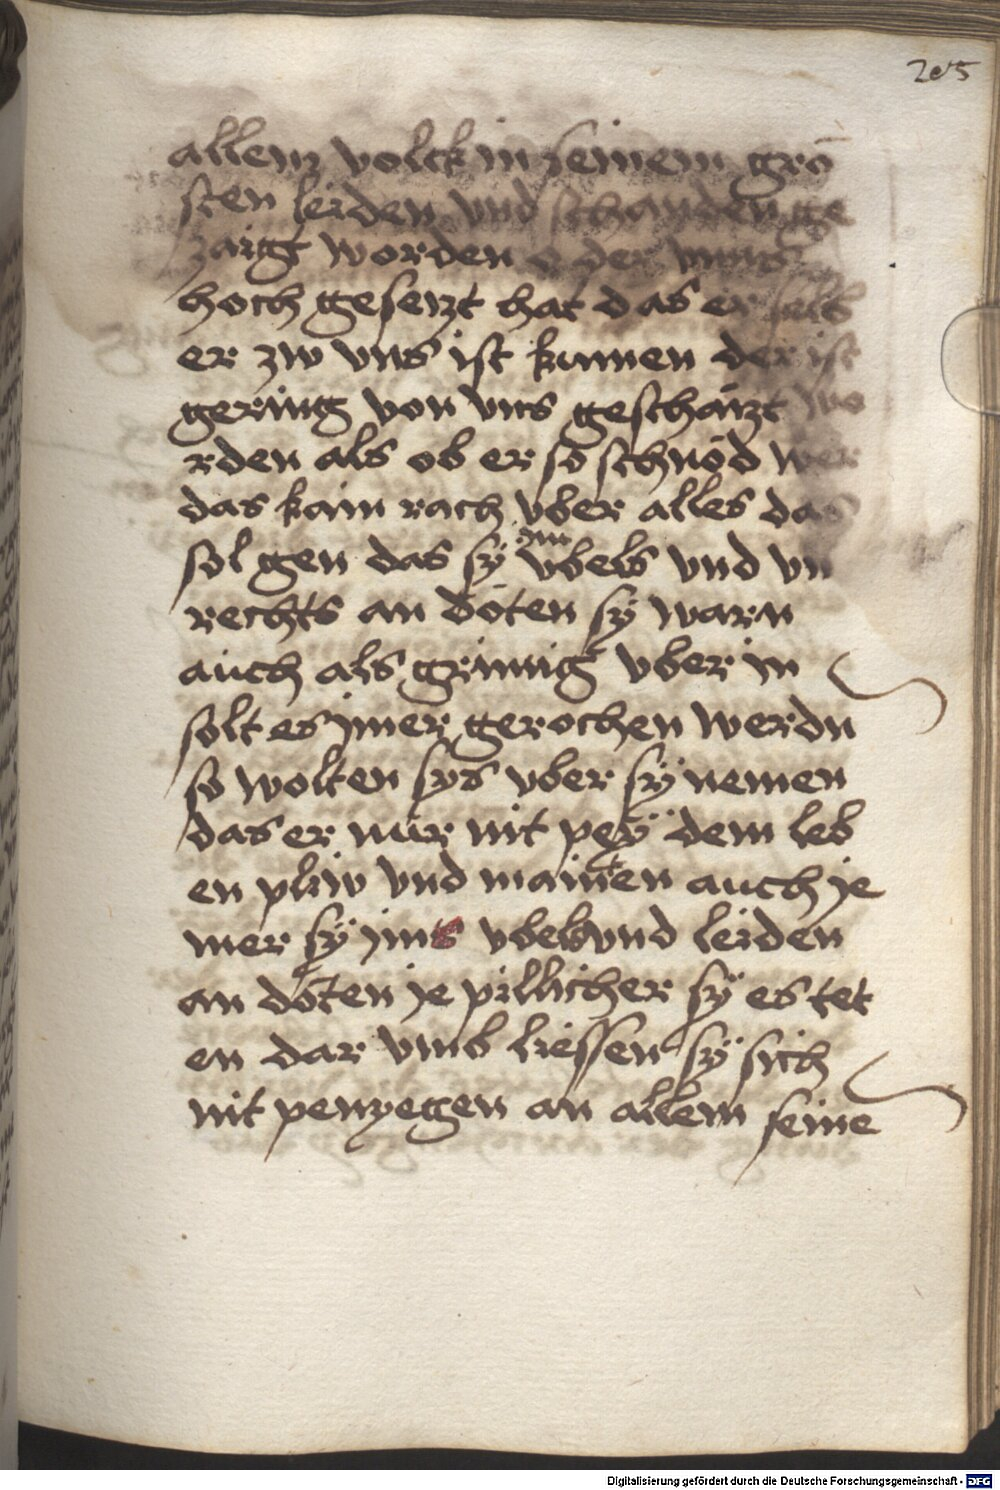 205
allem volck in seinem grō
sten leiden vnd schanden ge
zaigt worden o der vnns
hoch gesetzt hat das er selbs
er zw vns ist kumen der ist
gering von vns geschätzt wo
rden als ob er so schnöd wer
das kain rach vber alles das
sol gen das sÿ im vbels vnd vn
rechts an döten sÿ warn
auch als grimig vber in
solt es jmer gerochen werdn
so wolten sys vber sÿ nemen
das er nür nit peÿ dem leb
en plib vnd mainten auch je
mer sÿ jms vbels vnd leiden
an döten je pillicher sÿ es tet
en dar vmb liessen sÿ sich
nit penyegen an allem seine
Digitalisierung gefördert durch die Deutsche Forschungsgemeinschaft - DFG